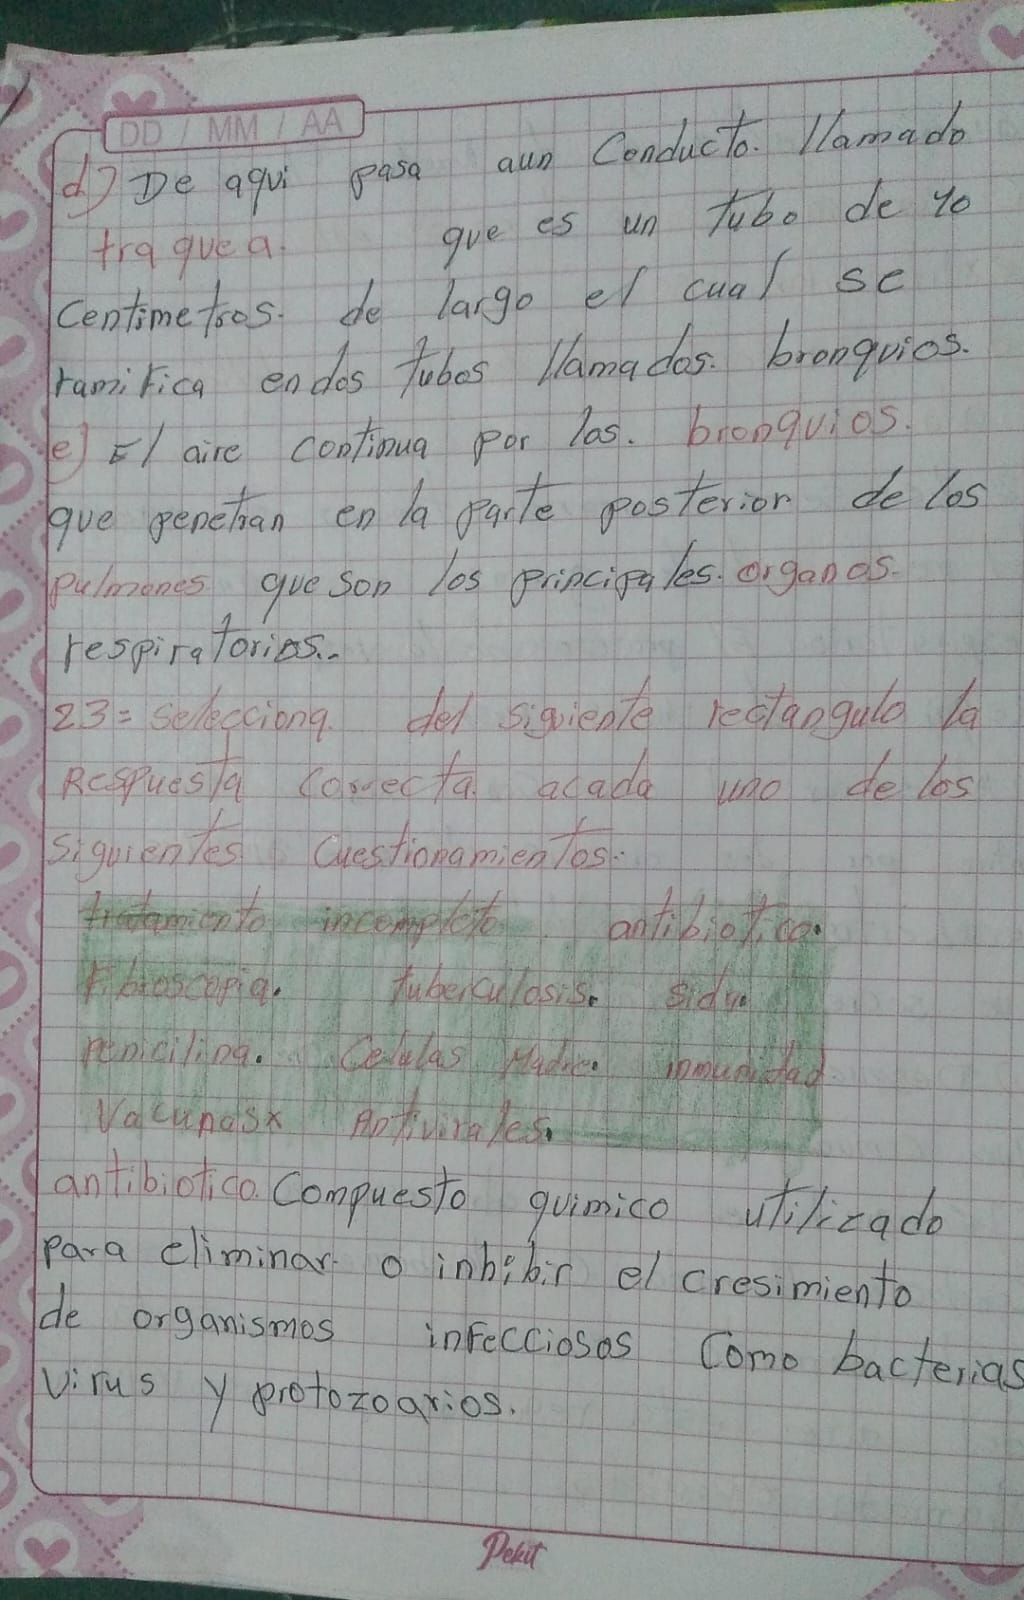 DD / MM / AA
d) De aqui pasa aun Conducto. llamado
traquea. que es un tubo de 10
Centimetros. de largo el cual se
ramifica en dos tubos llamados. bronquios.
e) El aire continua por los. bronquios.
que penetran en la parte posterior de los
pulmones que son los principales. organos.
respiratorios..
23= selecciona. del siguiente rectangulo la
Respuesta correcta acada uno de los
siguientes Cuestionamientos.
tratamiento incompleto. antibiotico.
Fibroscopia. tuberculosis. sida.
penicilina. Celulas Madre. inmunidad
Vacunasx Antivirales.
antibiotico. Compuesto quimico utilizado
para eliminar. o inhibir el cresimiento
de organismos infecciosos Como bacterias
virus y protozoarios.
Pekit